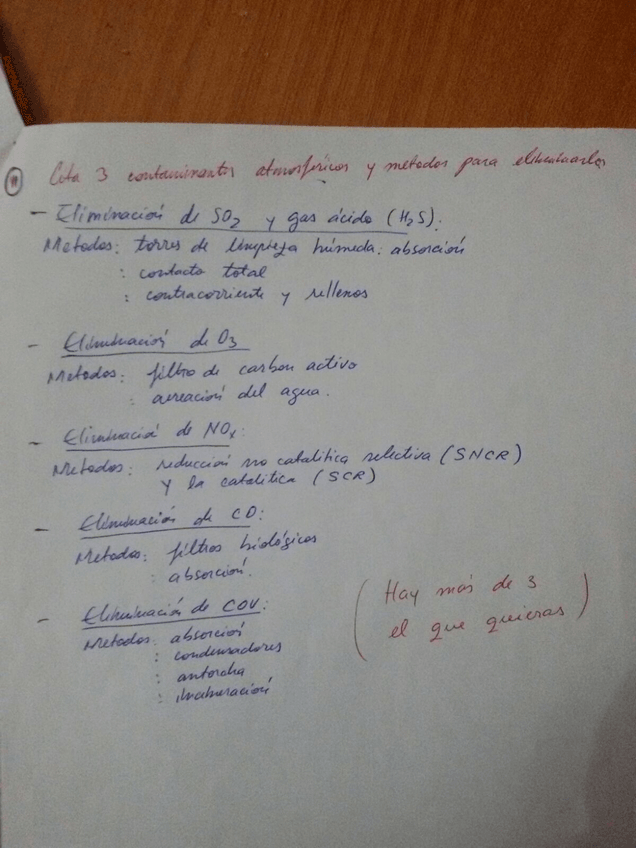 11 Cita 3 contaminantes atmosféricos y métodos para eliminarlos
- Eliminación de SO2 y gas ácido (H2S):
Metodos: torres de limpieza húmeda: absorción
: contacto total
: contracorriente y rellenos
- Eliminación de O3
Metodos: filtro de carbon activo
: aereación del agua.
- Eliminación de NOx:
Metodos: reducción no catalítica selectiva (SNCR)
y la catalítica (SCR)
- Eliminación de CO:
Metodos: filtros biológicos
: absorción.
- Eliminación de COV:
Metodos: absorción
: condensadores
: antorcha
: incineración
(Hay más de 3
el que quieras)